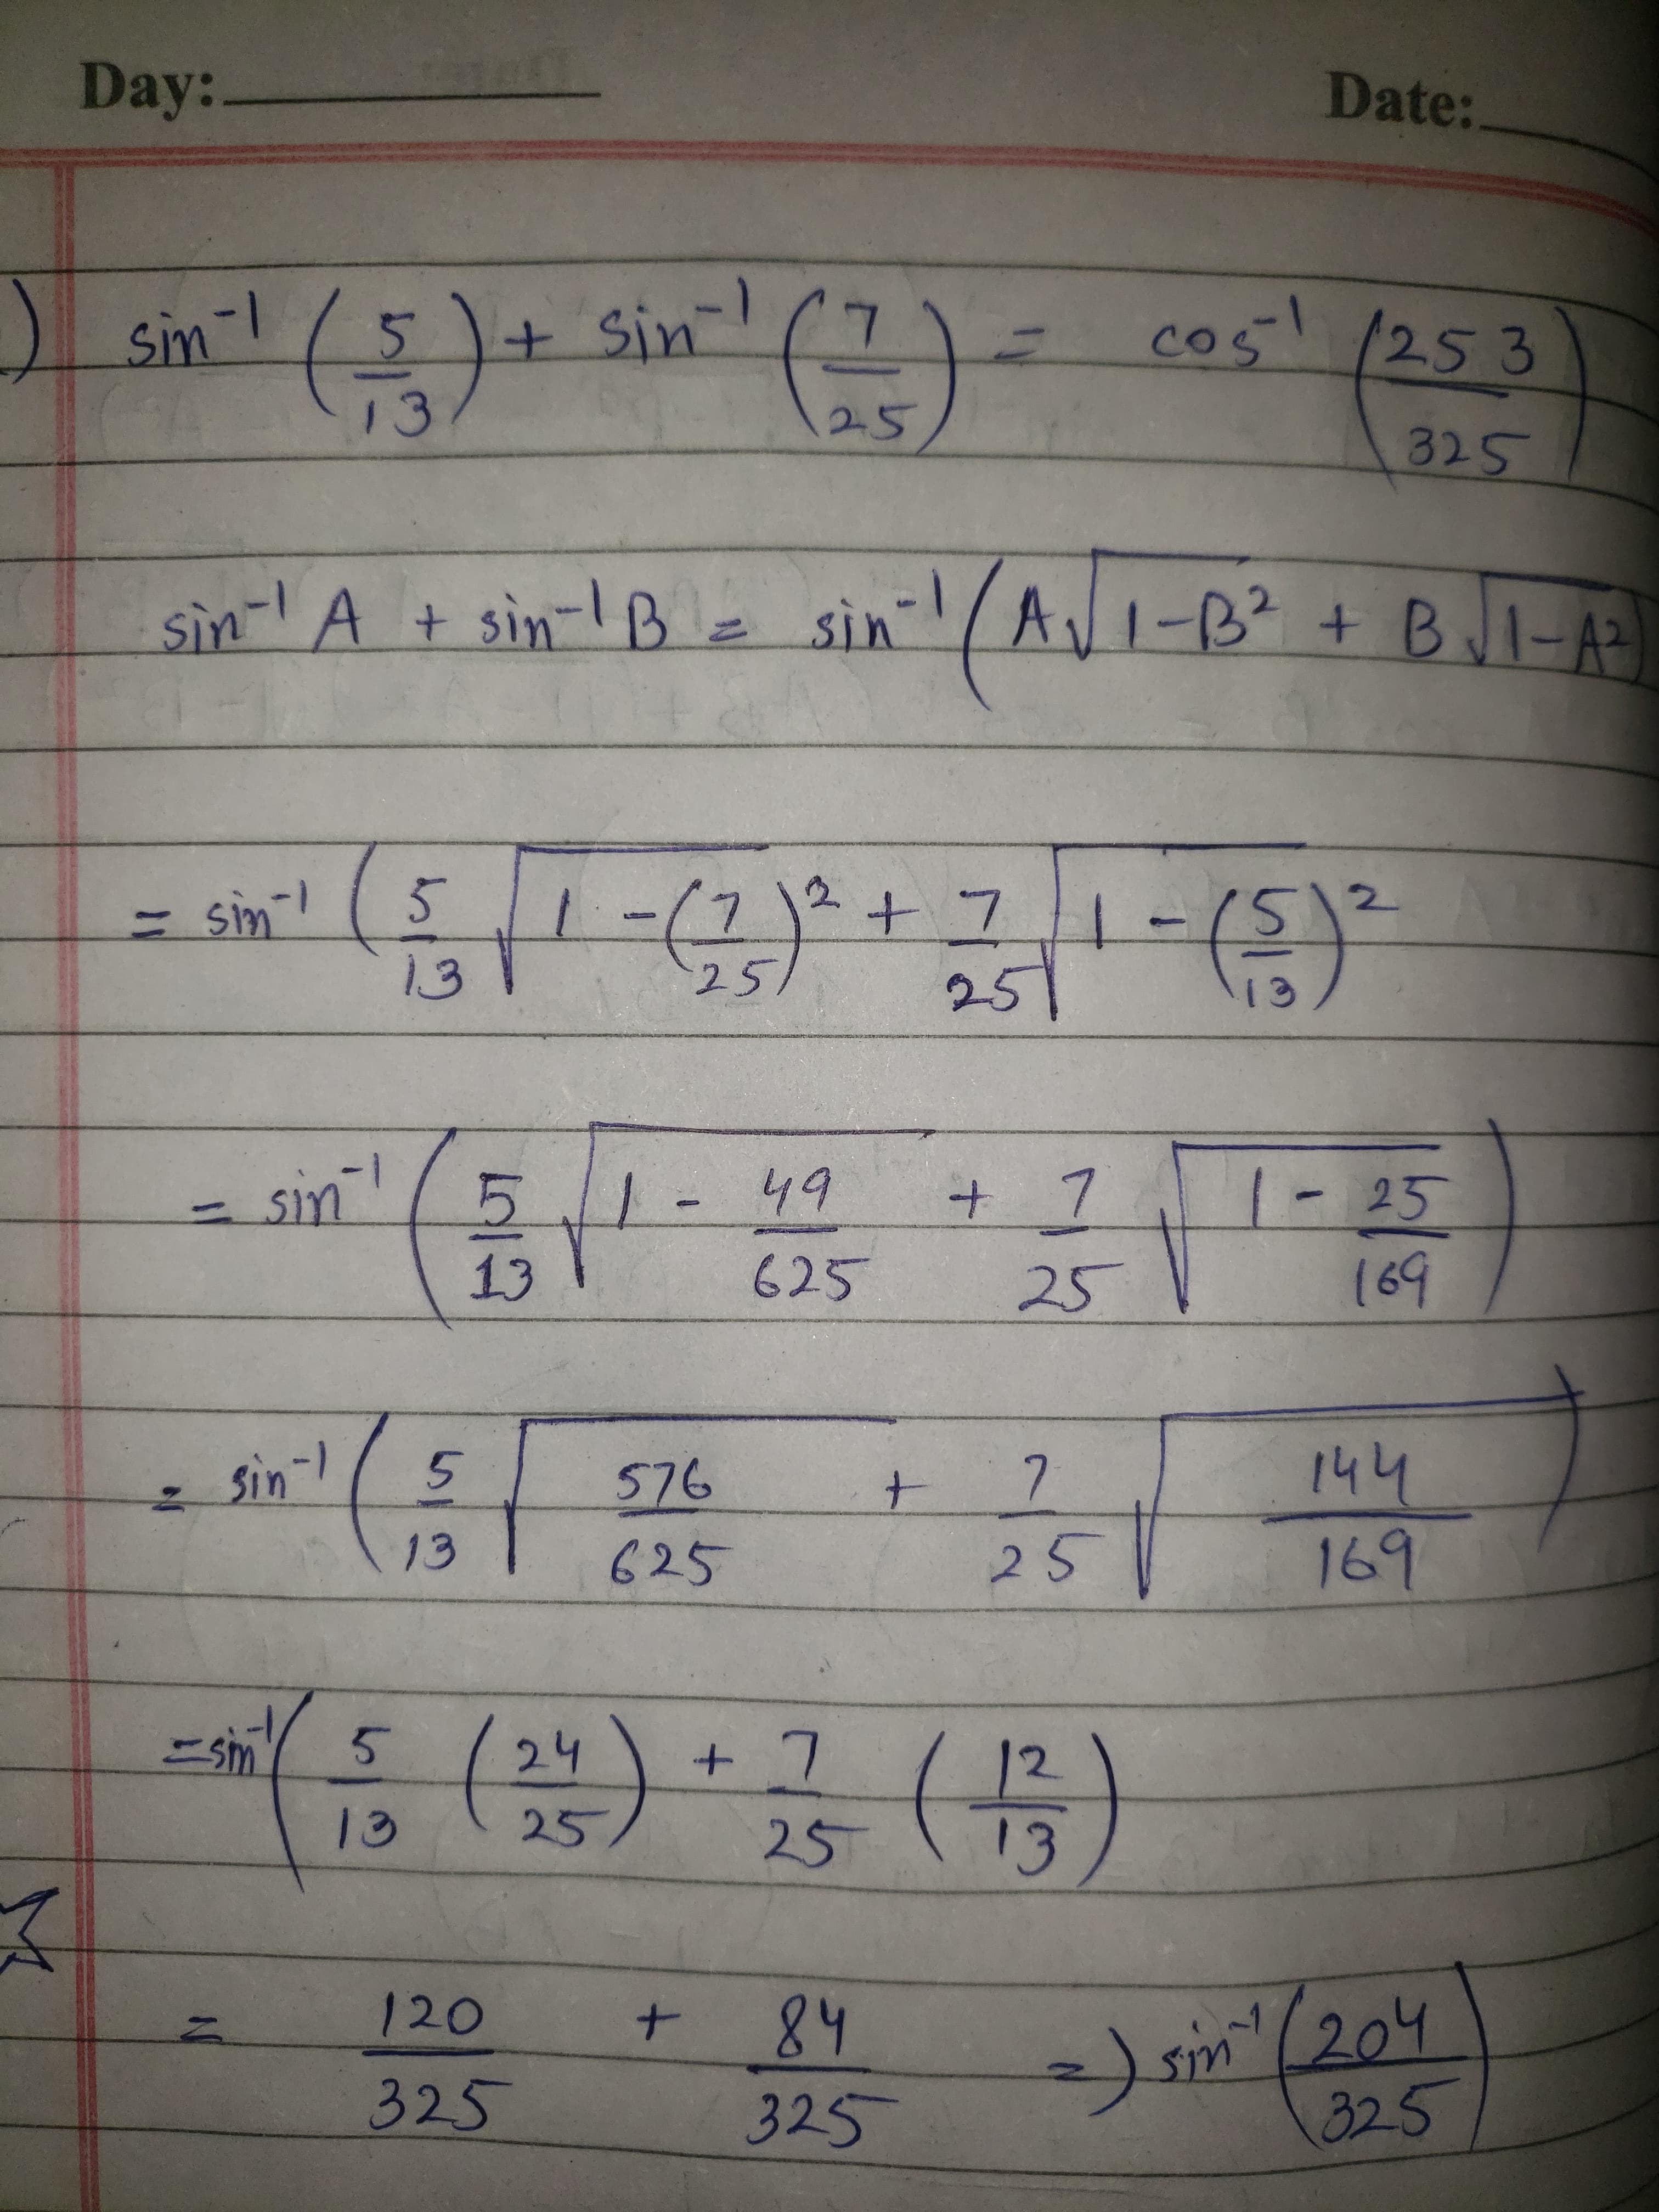 Day: Date:
) sin⁻¹ (5/13) + sin⁻¹ (7/25) = cos⁻¹ (253/325)
sin⁻¹ A + sin⁻¹ B = sin⁻¹ (A√(1-B²) + B√(1-A²))
= sin⁻¹ (5/13 √(1-(7/25)²) + 7/25 √(1-(5/13)²)
= sin⁻¹ (5/13 √(1 - 49/625) + 7/25 √(1 - 25/169))
= sin⁻¹ (5/13 √(576/625) + 7/25 √(144/169))
= sin⁻¹ (5/13 (24/25) + 7/25 (12/13)
= 120/325 + 84/325 =) sin⁻¹ (204/325)